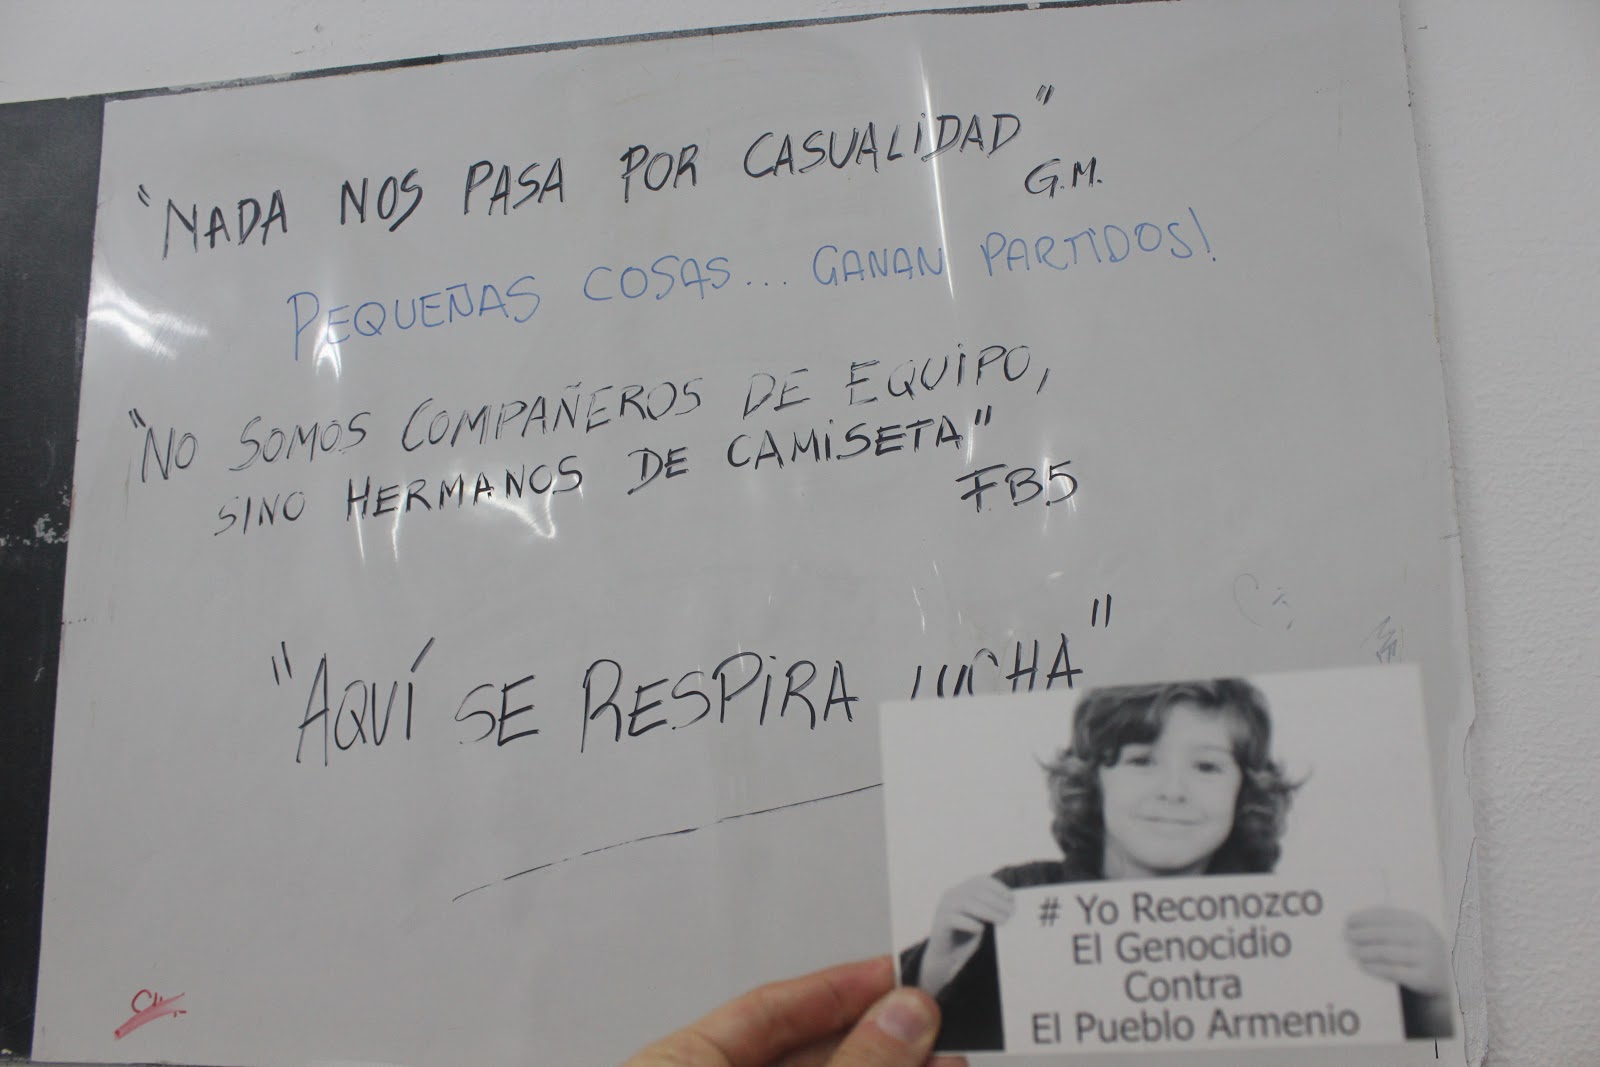 "NADA NOS PASA POR CASUALIDAD"
G.M.
PEQUEÑAS COSAS... GANAN PARTIDOS!
"NO SOMOS COMPAÑEROS DE EQUIPO,
SINO HERMANOS DE CAMISETA"
FB5
"AQUÍ SE RESPIRA LUCHA"
# Yo Reconozco
El Genocidio
Contra
El Pueblo Armenio